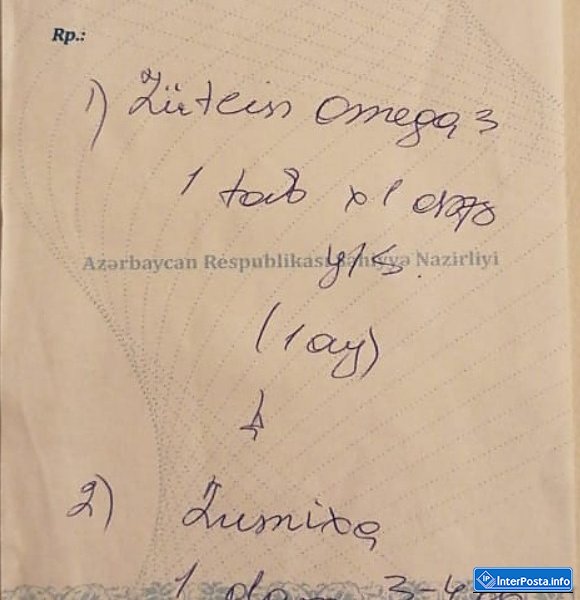 Rp.:
1) Lütein omega 3
1 tab x 1
Azərbaycan Respublikası Səhiyyə Nazirliyi
y/s.
(1 ay)
2)
1 dam 3-4
InterPosta.info